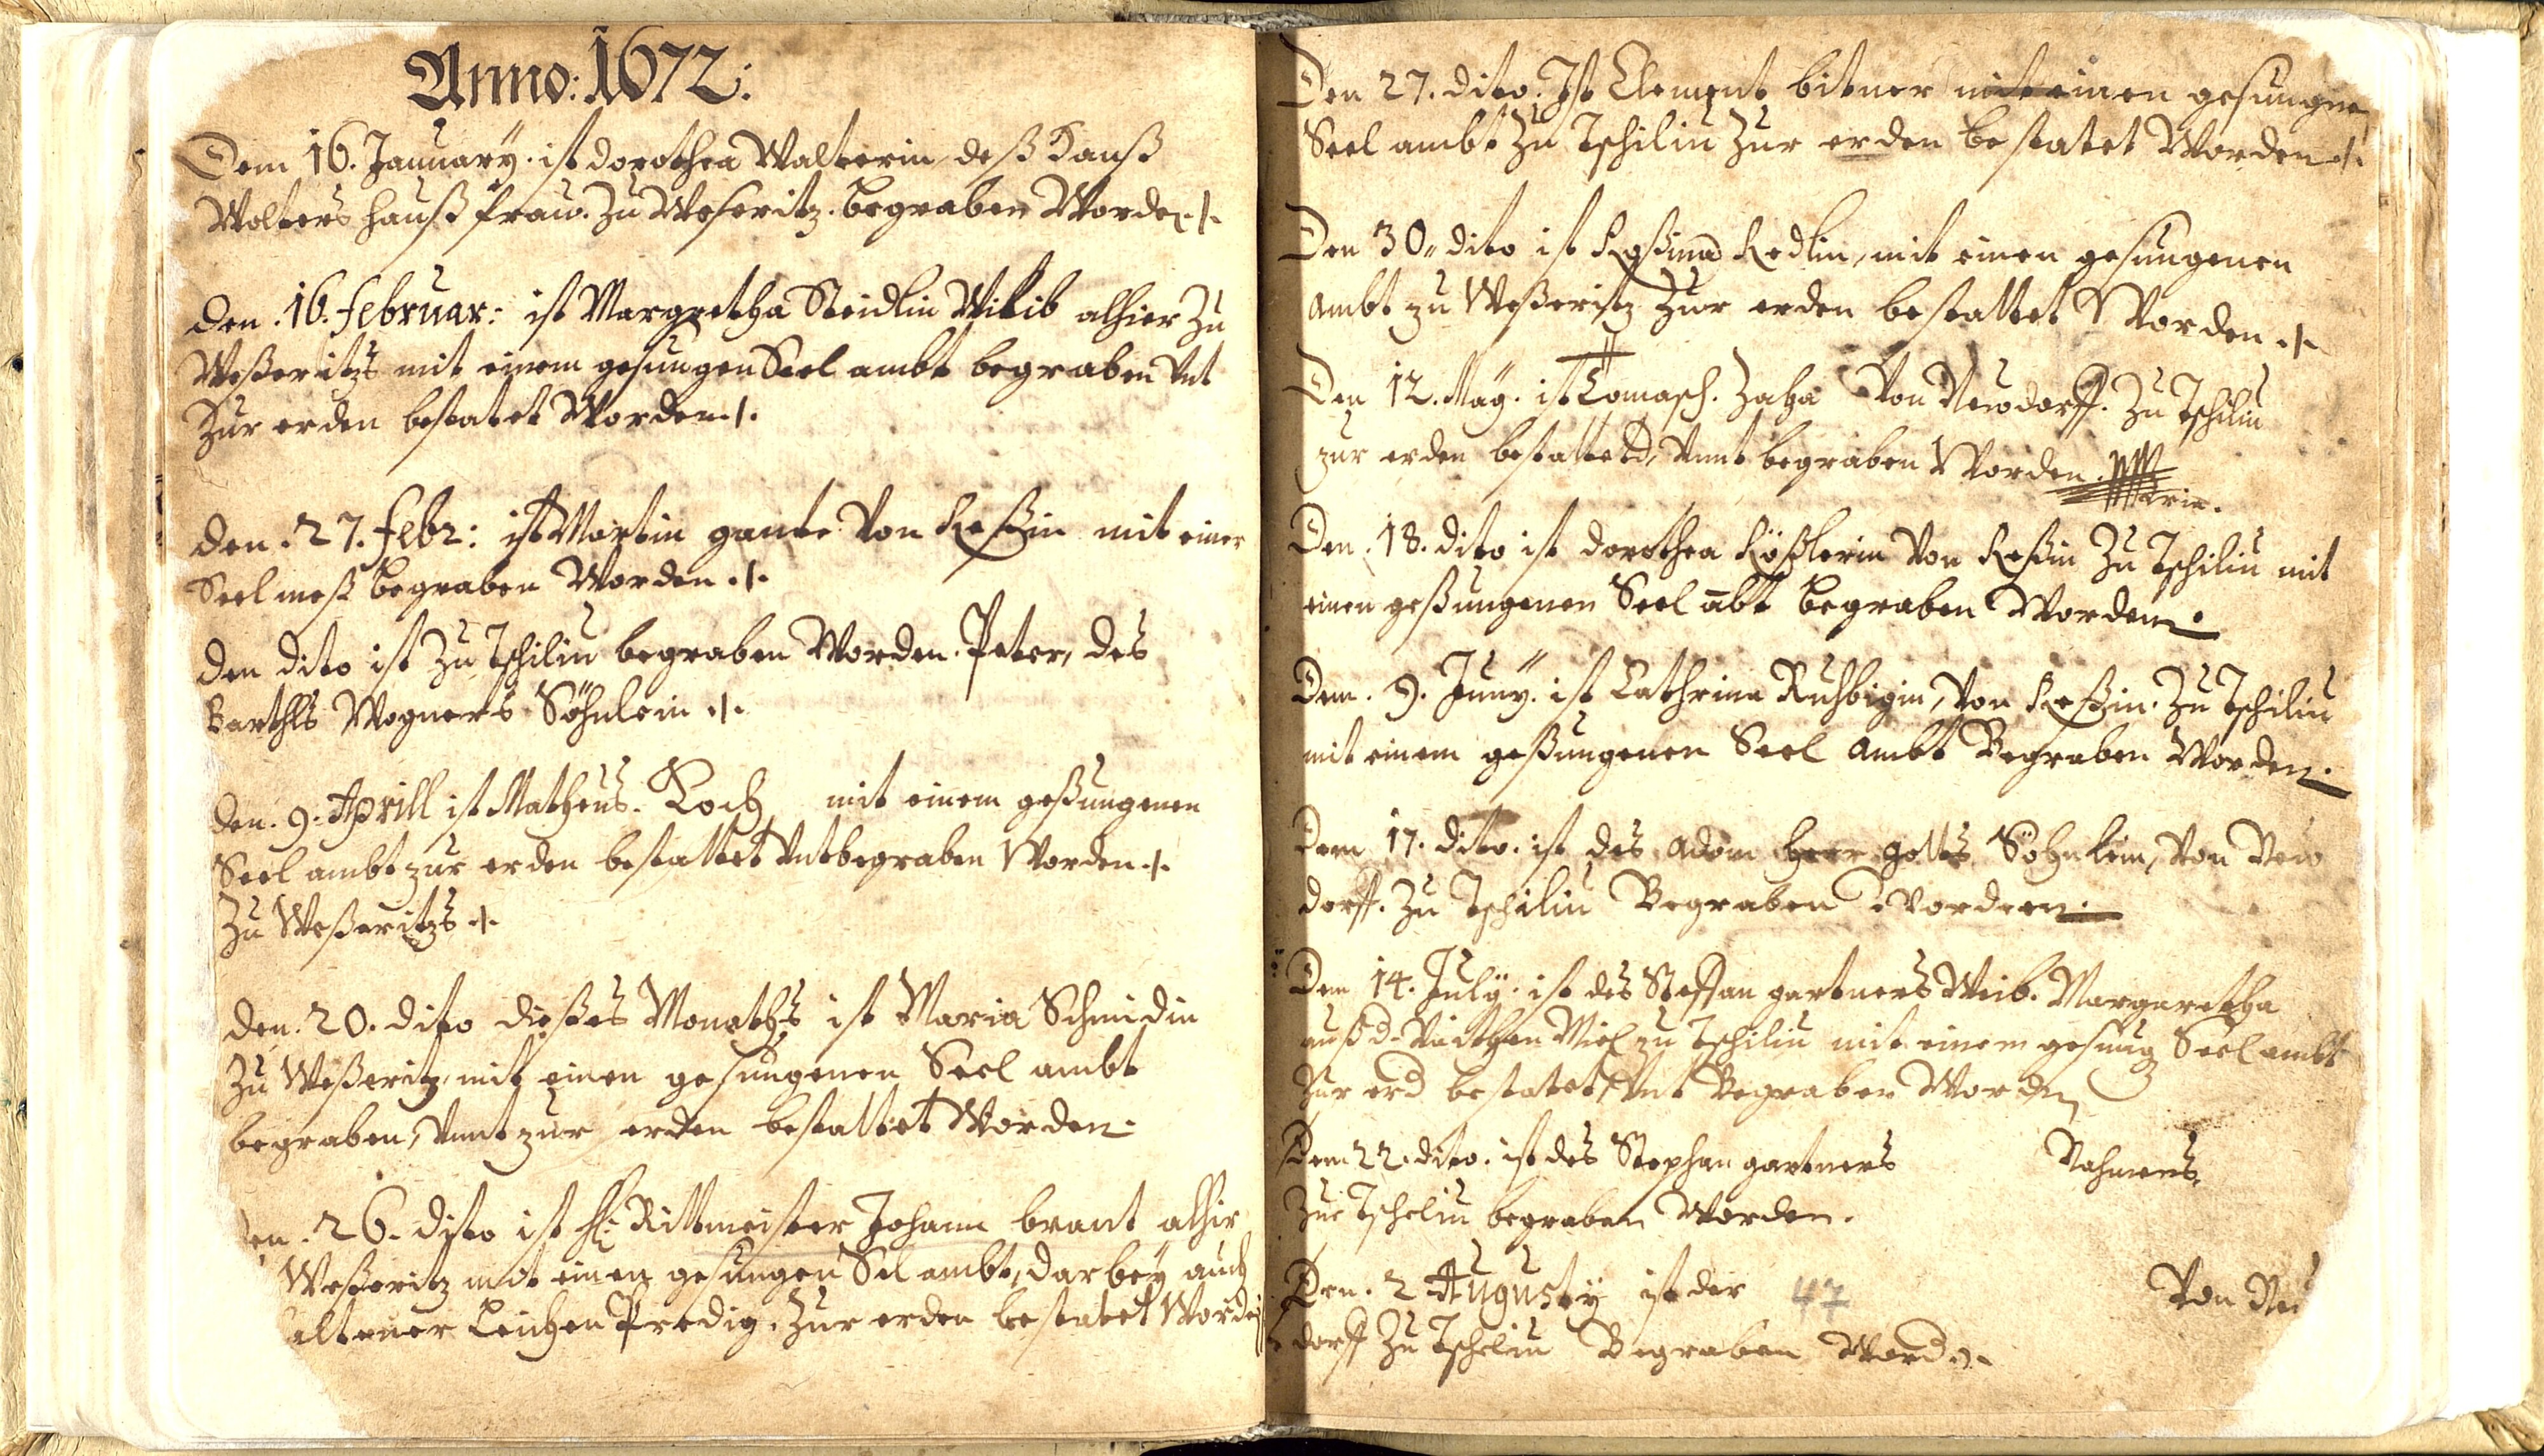 Anno: 1672:
Dem 16. January. ist dorothea Walterin, deß Hanß
Wolters hauß fraw. Zu Weseritz. begraben Worden ./.
den. 16. februar: ist Margretha Steidlin alhier Zu
Weßeritzs mit einem gesungen Seel ambt begraben Vnt
Zur erden bestatet Worden ./.
den. 27. febr: ist Martin gante Von mit einer
Seel meß begraben Worden ./.
den dito ist Zu Tschiliu begraben Worden. Peter, des
Barthls Wogners Söhnlein ./.
den. 9. Aprill ist Matheus. Koch mit einem geßungenen
Seel ambt zur erden bestattet Vnt begraben Worden ./.
Zu Weßeritzs ./.
den. 20. dito dießes Monaths ist Maria Schmidin
Zu Weßeritz, mit einen gesungenen Seel ambt
begraben, Vnnt zur erden bestattet Worden.
en. 26. dito ist H: Rittmeister Johann brant alhir
Weßeritz mit einen gesungen Sel ambt, dar beÿ auch
altener Leichen Predig. Zur erden bestatet Worden
Den 27. dito. Ist Clement bitner mit einen gesungen
Seel ambt Zu Tschiliu Zur erden bestatet Worden ./.
Den 30. dito ist Roßina Redlin, mit einen gesungenen
ambt zu Weßeritz Zur erden bestattet Worden ./.
Den 12. Maÿ. ist Tomasch. Zaha Von Newdorff. Zu Tschiliu
zur erden bestattet, Vnnt begraben Worden.
Den. 18. dito ist dorothea Rößlerin Von Zu Tschiliu mit
einen geßungenen Seel abt begraben Worden.
Dem. 9. Junÿ. ist Cathrina Von Zu Tschiliu
mit einem geßungenen Seel ambt Begraben Worden.
Dem 17. dito. ist des adam gotts Söhnlein, Von New
dorff. Zu Tschiliu Begraben Worden.
Dem 14. Julÿ. ist des Steffan gartners Weib. Margaretha
auß d. zu Tschiliu mit einem gesung Seel ambt
Zur erd bestatet, Vnt Begraben Worden
Dem 22. dito. ist des Stephan gartners Nahmens
Zue Tscheliu begraben Worden.
Den. 2 Augustÿ ist der 47 Von Neu
dorff Zu Tscheliu Begraben Word ./.